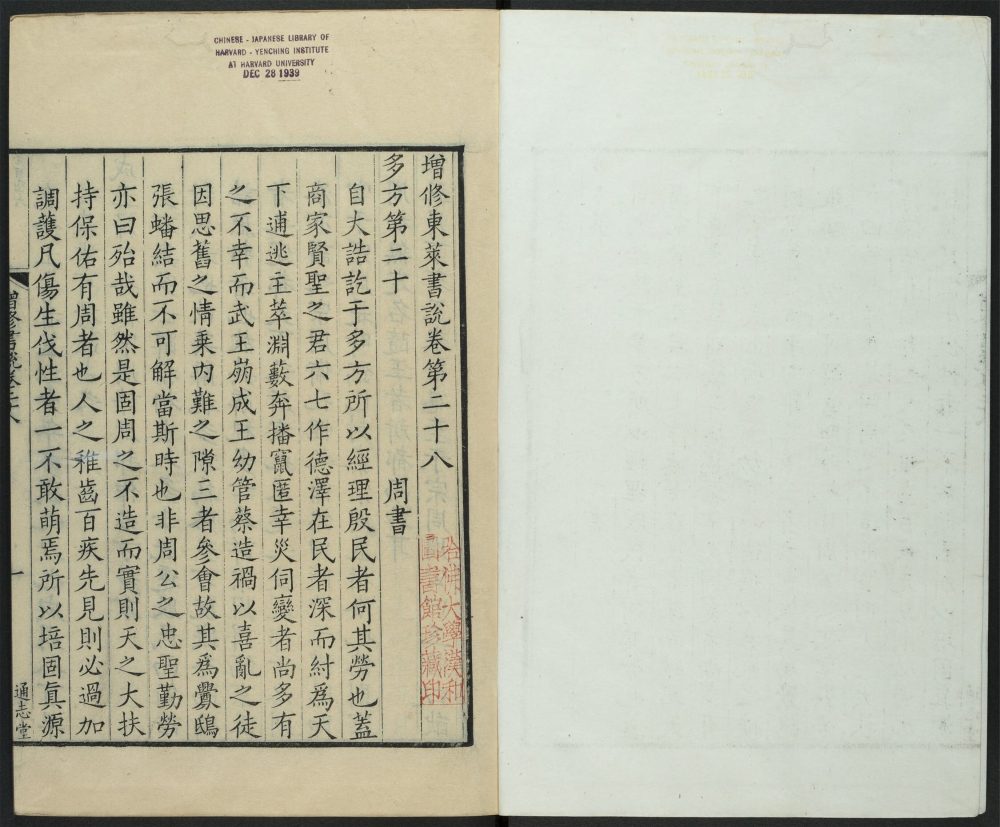 CHINESE - JAPANESE LIBRARY OF
HARVARD - YENCHING INSTITUTE
AT HARVARD UNIVERSITY
DEC 28 1939
增修東萊書說卷第二十八
多方第二十 周書
自大誥訖于多方所以經理殷民者何其勞也蓋
商家賢聖之君六七作德澤在民者深而紂爲天
下逋逃主萃淵藪奔播竄匿幸災伺變者尚多有
之不幸而武王崩成王幼管蔡造禍以喜亂之徒
因思舊之情乗内難之隙三者參會故其爲釁鴟
張蟠結而不可解當斯時也非周公之忠聖勤勞
亦曰殆哉雖然是固周之不造而實則天之大扶
持保佑有周者也人之稚齒百疾先見則必過加
調護凡傷生伐性者一不敢萌焉所以培固眞源
增修書說卷二十八
一
通志堂
哈佛大學漢和
圖書館珍藏印